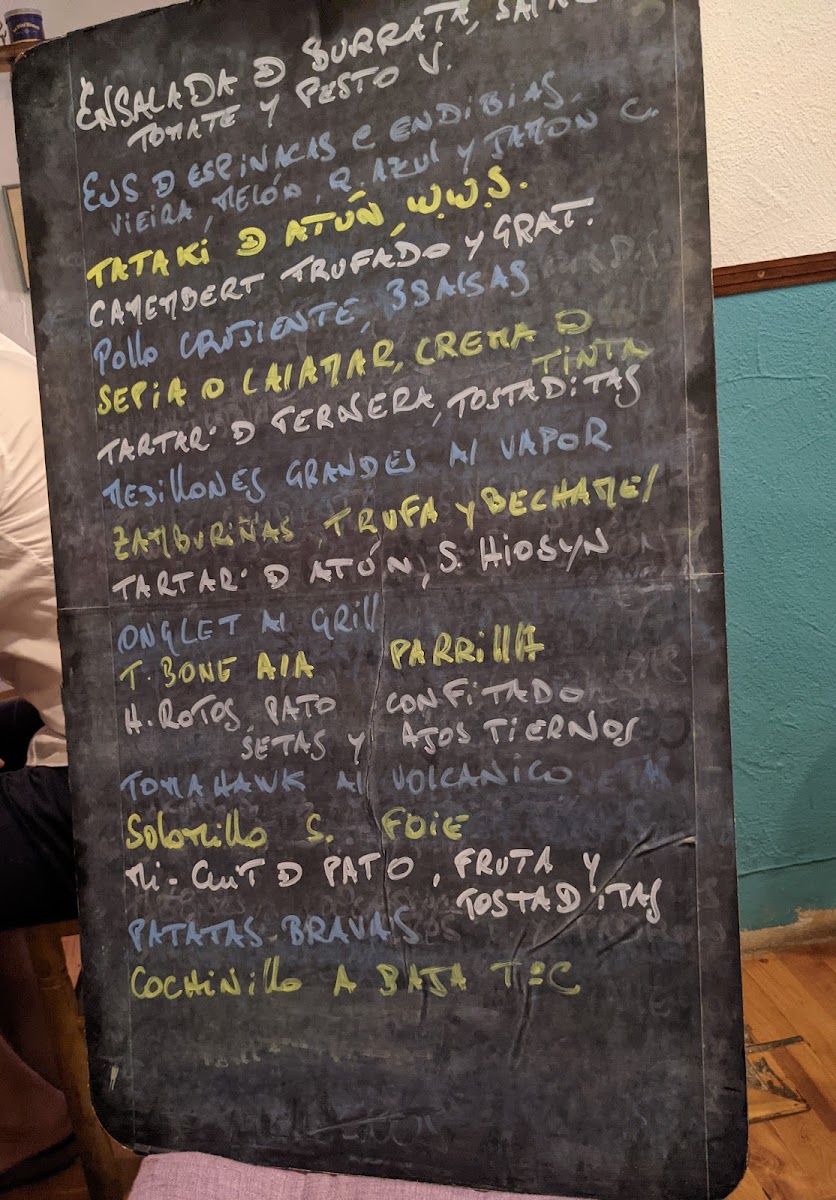 ENSALADA D BURRATA,
TOMATE Y PESTO V.
ENS D ESPINACAS C ENDIBIAS,
VIEIRA, MELÓN, Q. AZUL Y JAMÓN C.
TATAKI D ATÚN, W.W.S.
CAMEMBERT TRUFADO Y GRAT.
POLLO CRUJIENTE, 3 SALSAS
SEPIA O CALAMAR, CREMA D
TINTA
TARTAR D TERNERA, TOSTADITAS
MEJILLONES GRANDES AL VAPOR
ZAMBURIÑAS, TRUFA Y BECHAMEL
TARTAR D ATÚN, S. HIOSYN
ONGLET AL GRILL
T. BONE A LA PARRILLA
H. ROTOS, PATO CONFITADO
SETAS Y AJOS TIERNOS
TOMAHAWK AL VOLCANICO
SOLOMILLO S. FOIE
MI-CUIT D PATO, FRUTA Y
TOSTADITAS
PATATAS BRAVAS
COCHINILLO A BAJA TºC